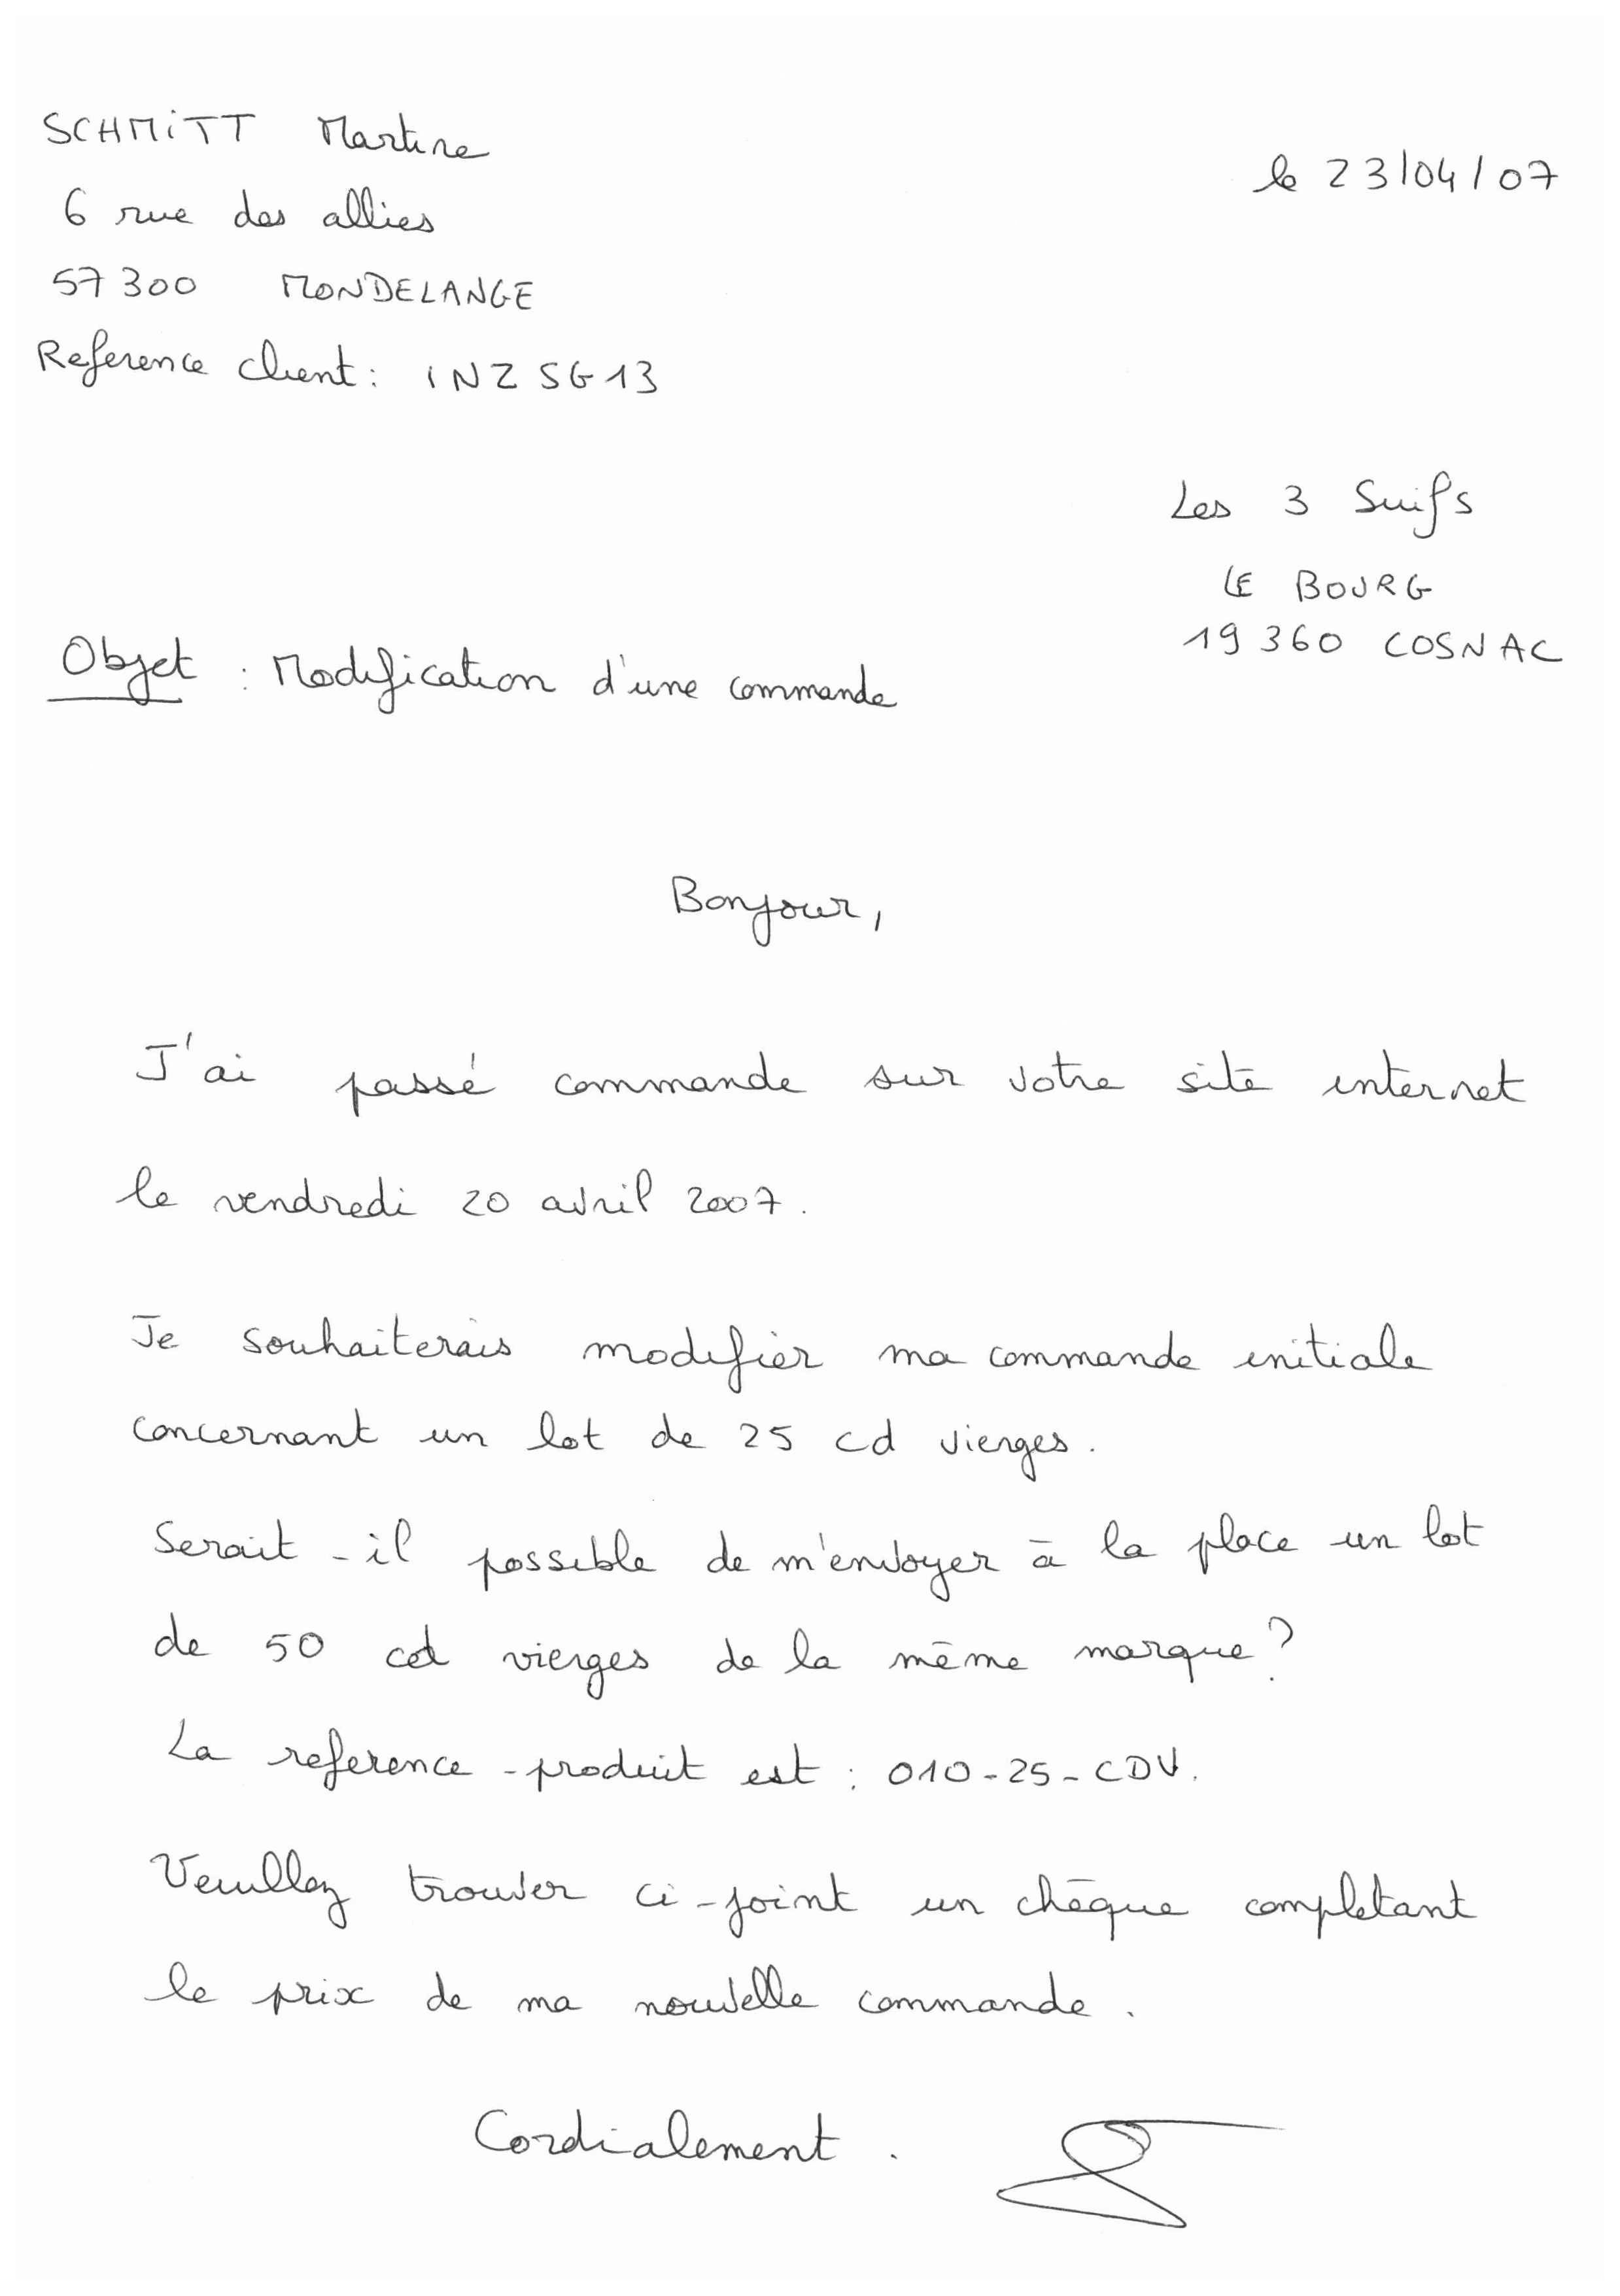 SCHMITT Martine
le 23/04/07
6 rue des allies
57300 MONDELANGE
Reference client : INZSG13
Les 3 Suifs
LE BOURG
19360 COSNAC
Objet : Modification d'une commande
Bonjour,
J'ai passé commande sur votre site internet
le vendredi 20 avril 2007.
Je souhaiterais modifier ma commande initiale
concernant un lot de 25 cd vierges.
Serait-il possible de m'envoyer à la place un lot
de 50 cd vierges de la même marque?
La reference-produit est : 010-25-CDV.
Veuillez trouver ci-joint un chèque completant
le prix de ma nouvelle commande.
Cordialement.